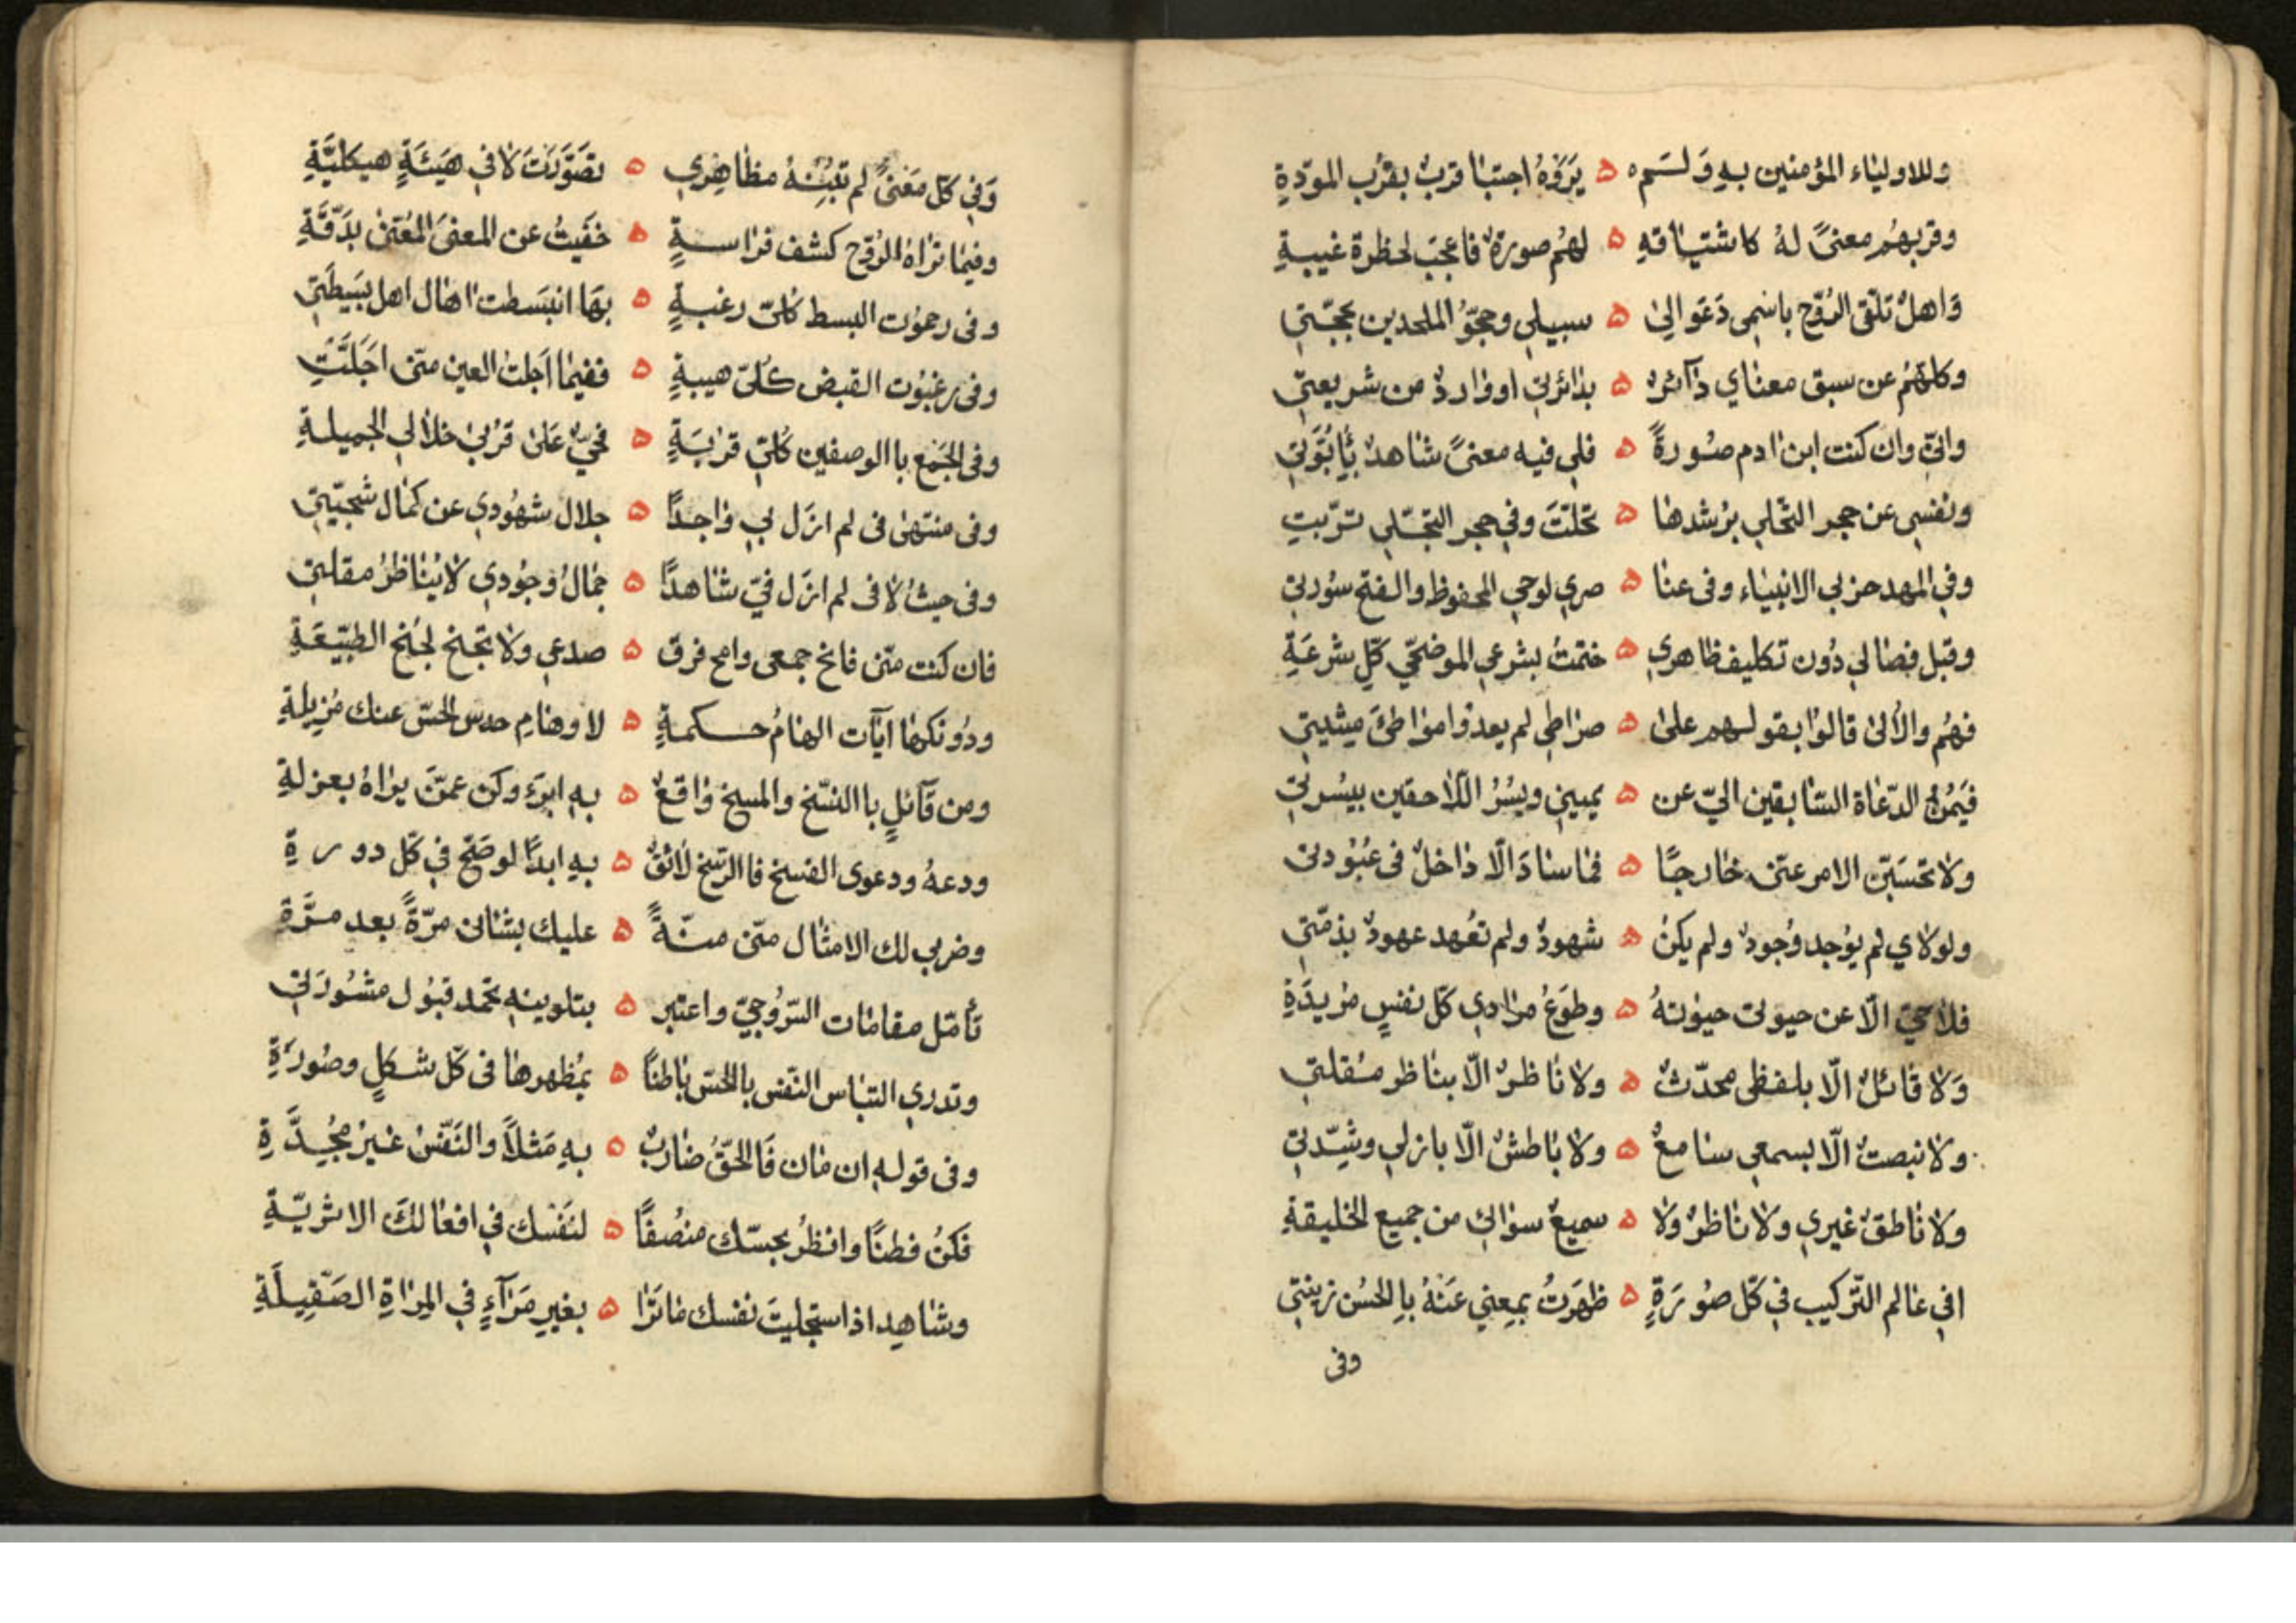 وللاولياء المؤمنين بهِ وَلسَم ه يَرَوهُ اجتبا قربٌ بقرُب المودّةِ
وقربهُم معنىً لهُ كاشتياقهِ ه لهُم صورةٌ فاعجَب لحظرة غيبةِ
وَاهلُ تلقى الرُوح باسْمِى دَعَوا اِلىٰ ه سبيلي وحجوُّ الملحدين بحجّتِي
وكلهُم عن سبق معناي دآئرٌ ه بدائرتي او واردٌ من شريعتي
وانّي وان كنت ابن ادم صُورةً ه فلي فيه معنىً شاهدٌ بأُبُوَّتي
ونفسِى عن حجر التخلي برُشدها ه تخلّتَ وفي حجر التجَلي تربّتِ
وفي المهد حزبي الانبياء وفى عنا ه صري لوحي المحفوظ والفتح سُورتي
وقبل فصالي دُون تكليف ظاهري ه ختمتُ بشرعي الموضحي كلّ شرعَةِ
فهُم والأُلىٰ قالوا بقولهم علىٰ ه صراطي لم يعدوا مواطئَ مشيتي
فَيَمُنُ الدّعاة السّابقين اليّ عن ه يميني ويُسُرُ اللاحقين بيسُرتي
ولا تحسَبَنّ الامر عنّى خارجًا ه فما سادَ الّا داخلٌ فى عبُوُدتى
ولولاي لم يوُجد وُجودٌ ولم يكنْ ه شهودٌ ولم تعُهد عهودٌ بذمّتي
فلا حيّ الّا عن حيوتى حيوٰتهُ ه وطوَعُ مرادي كلّ نفسٍ مُريدَةِ
وَلا قائلٌ الّا بلفظى محدّثٌ ه ولا ناظرٌ الّا بناظر مُقلتي
ولا نبصتٌ الّا بسمعي سامعٌ ه ولا باطشٌ الّا بازلي وشِدّتي
ولا ناطقٌ غيري ولا ناظرٌ ولا ه سميعٌ سوائي من جميع الخليقةِ
افي عالم التّركيب في كلّ صُورَةٍ ه ظهَرَتُ بمعِني عَنهُ بِالحُسُن زينتي
وفى
وَفي كلّ مَعَنىً لم تُبِنهُ مظاهِري ه تصَوّرَتَ لا في هَيئَةٍ هيكليَّةِ
وفيما تراهُ الرُوح كشف فراسةٍ ه خفَيتُ عن المعنىٰ المُعَنىٰ بدَقّةِ
وفى رحمُوت البسط كلّى رغبةٍ ه بهَا انبَسطت اٰمال اهل بسَيطَتي
وفى رهبُوت القبض كُلّى هيبةٍ ه ففيما اَجَلت العين منّى اَجَلَّتِ
وفى الجَمع باالوصفين كُلّي قربَةٍ ه فحيّ عَلىٰ قرُبىٰ خلالي الجميلةِ
وفى منتهىٰ فى لم ازَل بي واجدًا ه جلال شهُودي عن كمال سجيّتي
وفى حيثُ لا فى لم ازَل فيّ شاهدًا ه جمالُ وجُودي لا يُناظرُ مقلتي
فان كنت منّى فانح جمعى وامح فرق ه صدعي ولا تجنح لجُنح الطبيَعَةِ
ودُونكها اٰيآت الهامُ حكمةٍ ه لاوهام حدس الحسّ عنك مُزيلةِ
ومن قآئلٍ باالنسّخ والمسخ واقعٌ ه بهِ ابرَء وكن عمّن يراهُ بعزلةِ
ودعهُ ودعوى الفسخ فاالرسّخ لائقٌ ه بهِ ابدًا لو صَحّ في كلّ دورةِ
وضربي لك الامثال منّى منّةً ه عليك بشانى مرّةً بعد مرَّةِ
تأمّل مقامات السّرُوجيّ واعتبر ه بتلوينهِ تحمد قبوُل مشُورَتي
وتدري التباس النفس بالحسّ باطنًا ه بمُظهرها فى كلّ شكلٍ وصُورَةِ
وفى قولهِ ان مان فَالحَقُّ ضاربٌ ه بهِ مَثلاً والنَفسُ غيرُ مجُدَّةِ
فكنُ فطنًا وانظُر بحسّك منُصفًا ه لنَفسك في افعالكَ الاثريّةِ
وشاهِد اذا ستجليتَ نفسك ما ترَا ه بغيرِ مَرآءٍ في المِراةِ الصَقيِلَةِ